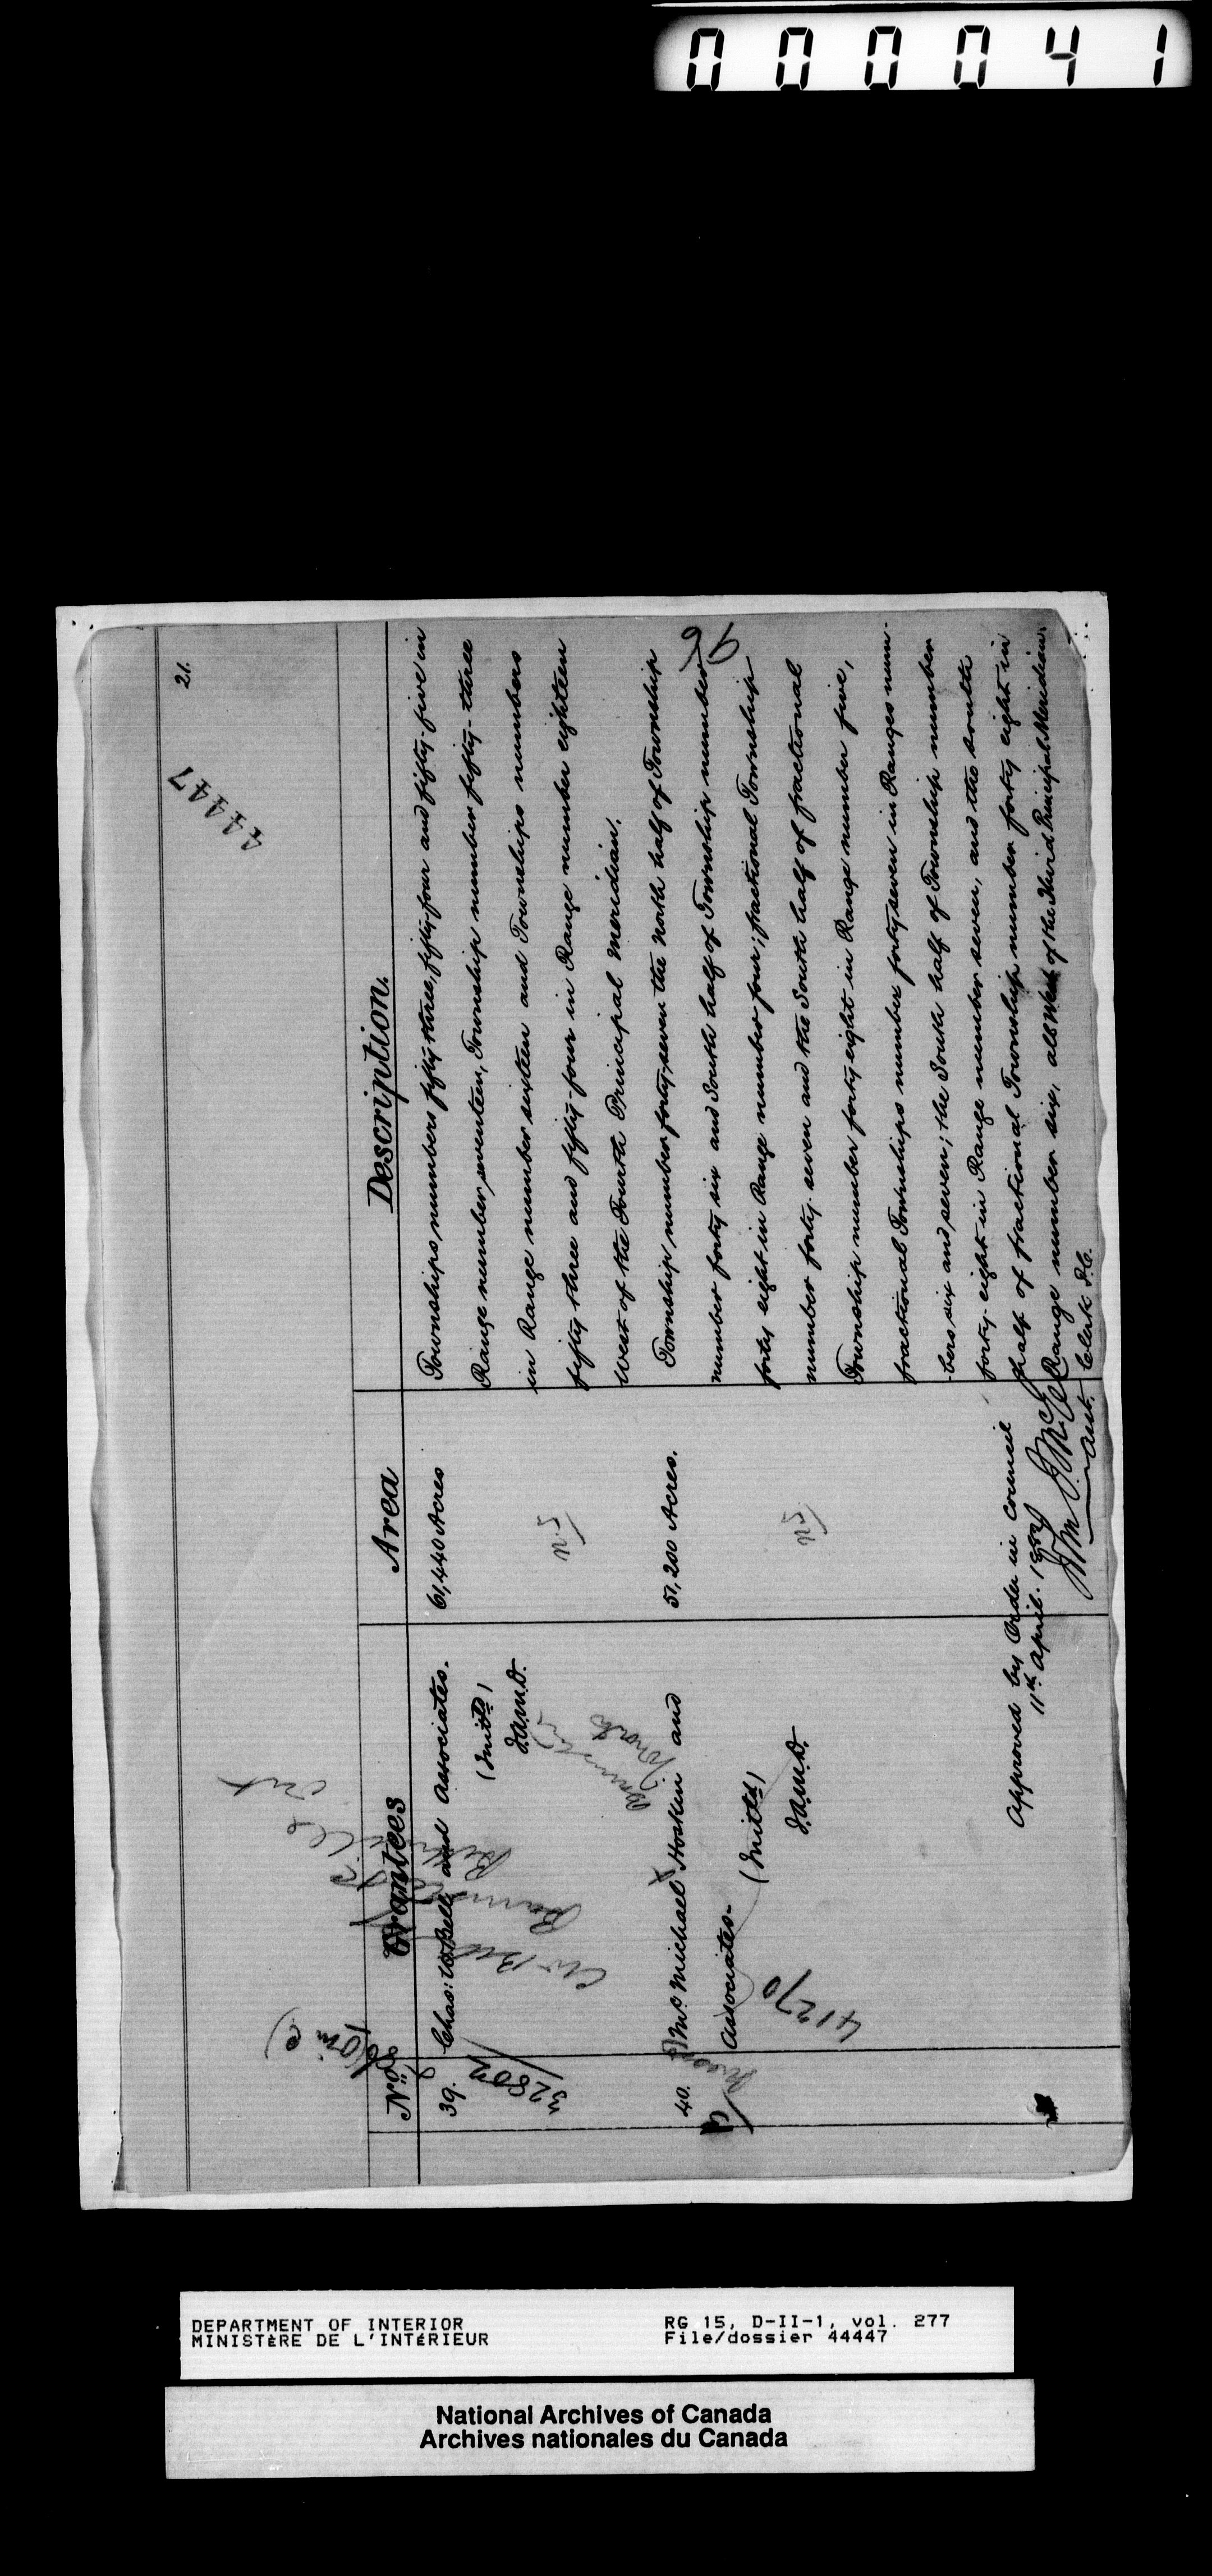 000041
21.
44447
Nos
Grantees
Area
Description.
39.
Chas: W. Bell and Associates.
(Init'd)
J.A.M.D.
32807
61,440 Acres
N.S.
Townships numbers fifty three, fifty-four and fifty-five in
Range number seventeen, Township number fifty-three
in Range number sixteen and Townships numbers
fifty three and fifty-four in Range number eighteen
West of the Fourth Principal Meridian.
40.
McMichael Hoskin and
Associates.
(Init'd)
J.A.M.D.
41270
51,200 Acres.
N.S.
Township number forty-seven the North half of Township
number forty six and South half of Township number
forty eight in Range number four; fractional Township
number forty-seven and the South half of fractional
Township number forty eight in Range number five,
fractional Townships number forty seven in Ranges num-
-bers six and seven; the South half of Township number
forty-eight in Range number seven, and the South
half of fractional Township number forty eight in
Range number six, all West of the Third Principal Meridian.
26
Approved by Order in Council
11th April. 1882
Asst. Clerk P.C.
DEPARTMENT OF INTERIOR
MINISTÈRE DE L'INTÉRIEUR
RG 15, D-II-1, vol. 277
File/dossier 44447
National Archives of Canada
Archives nationales du Canada